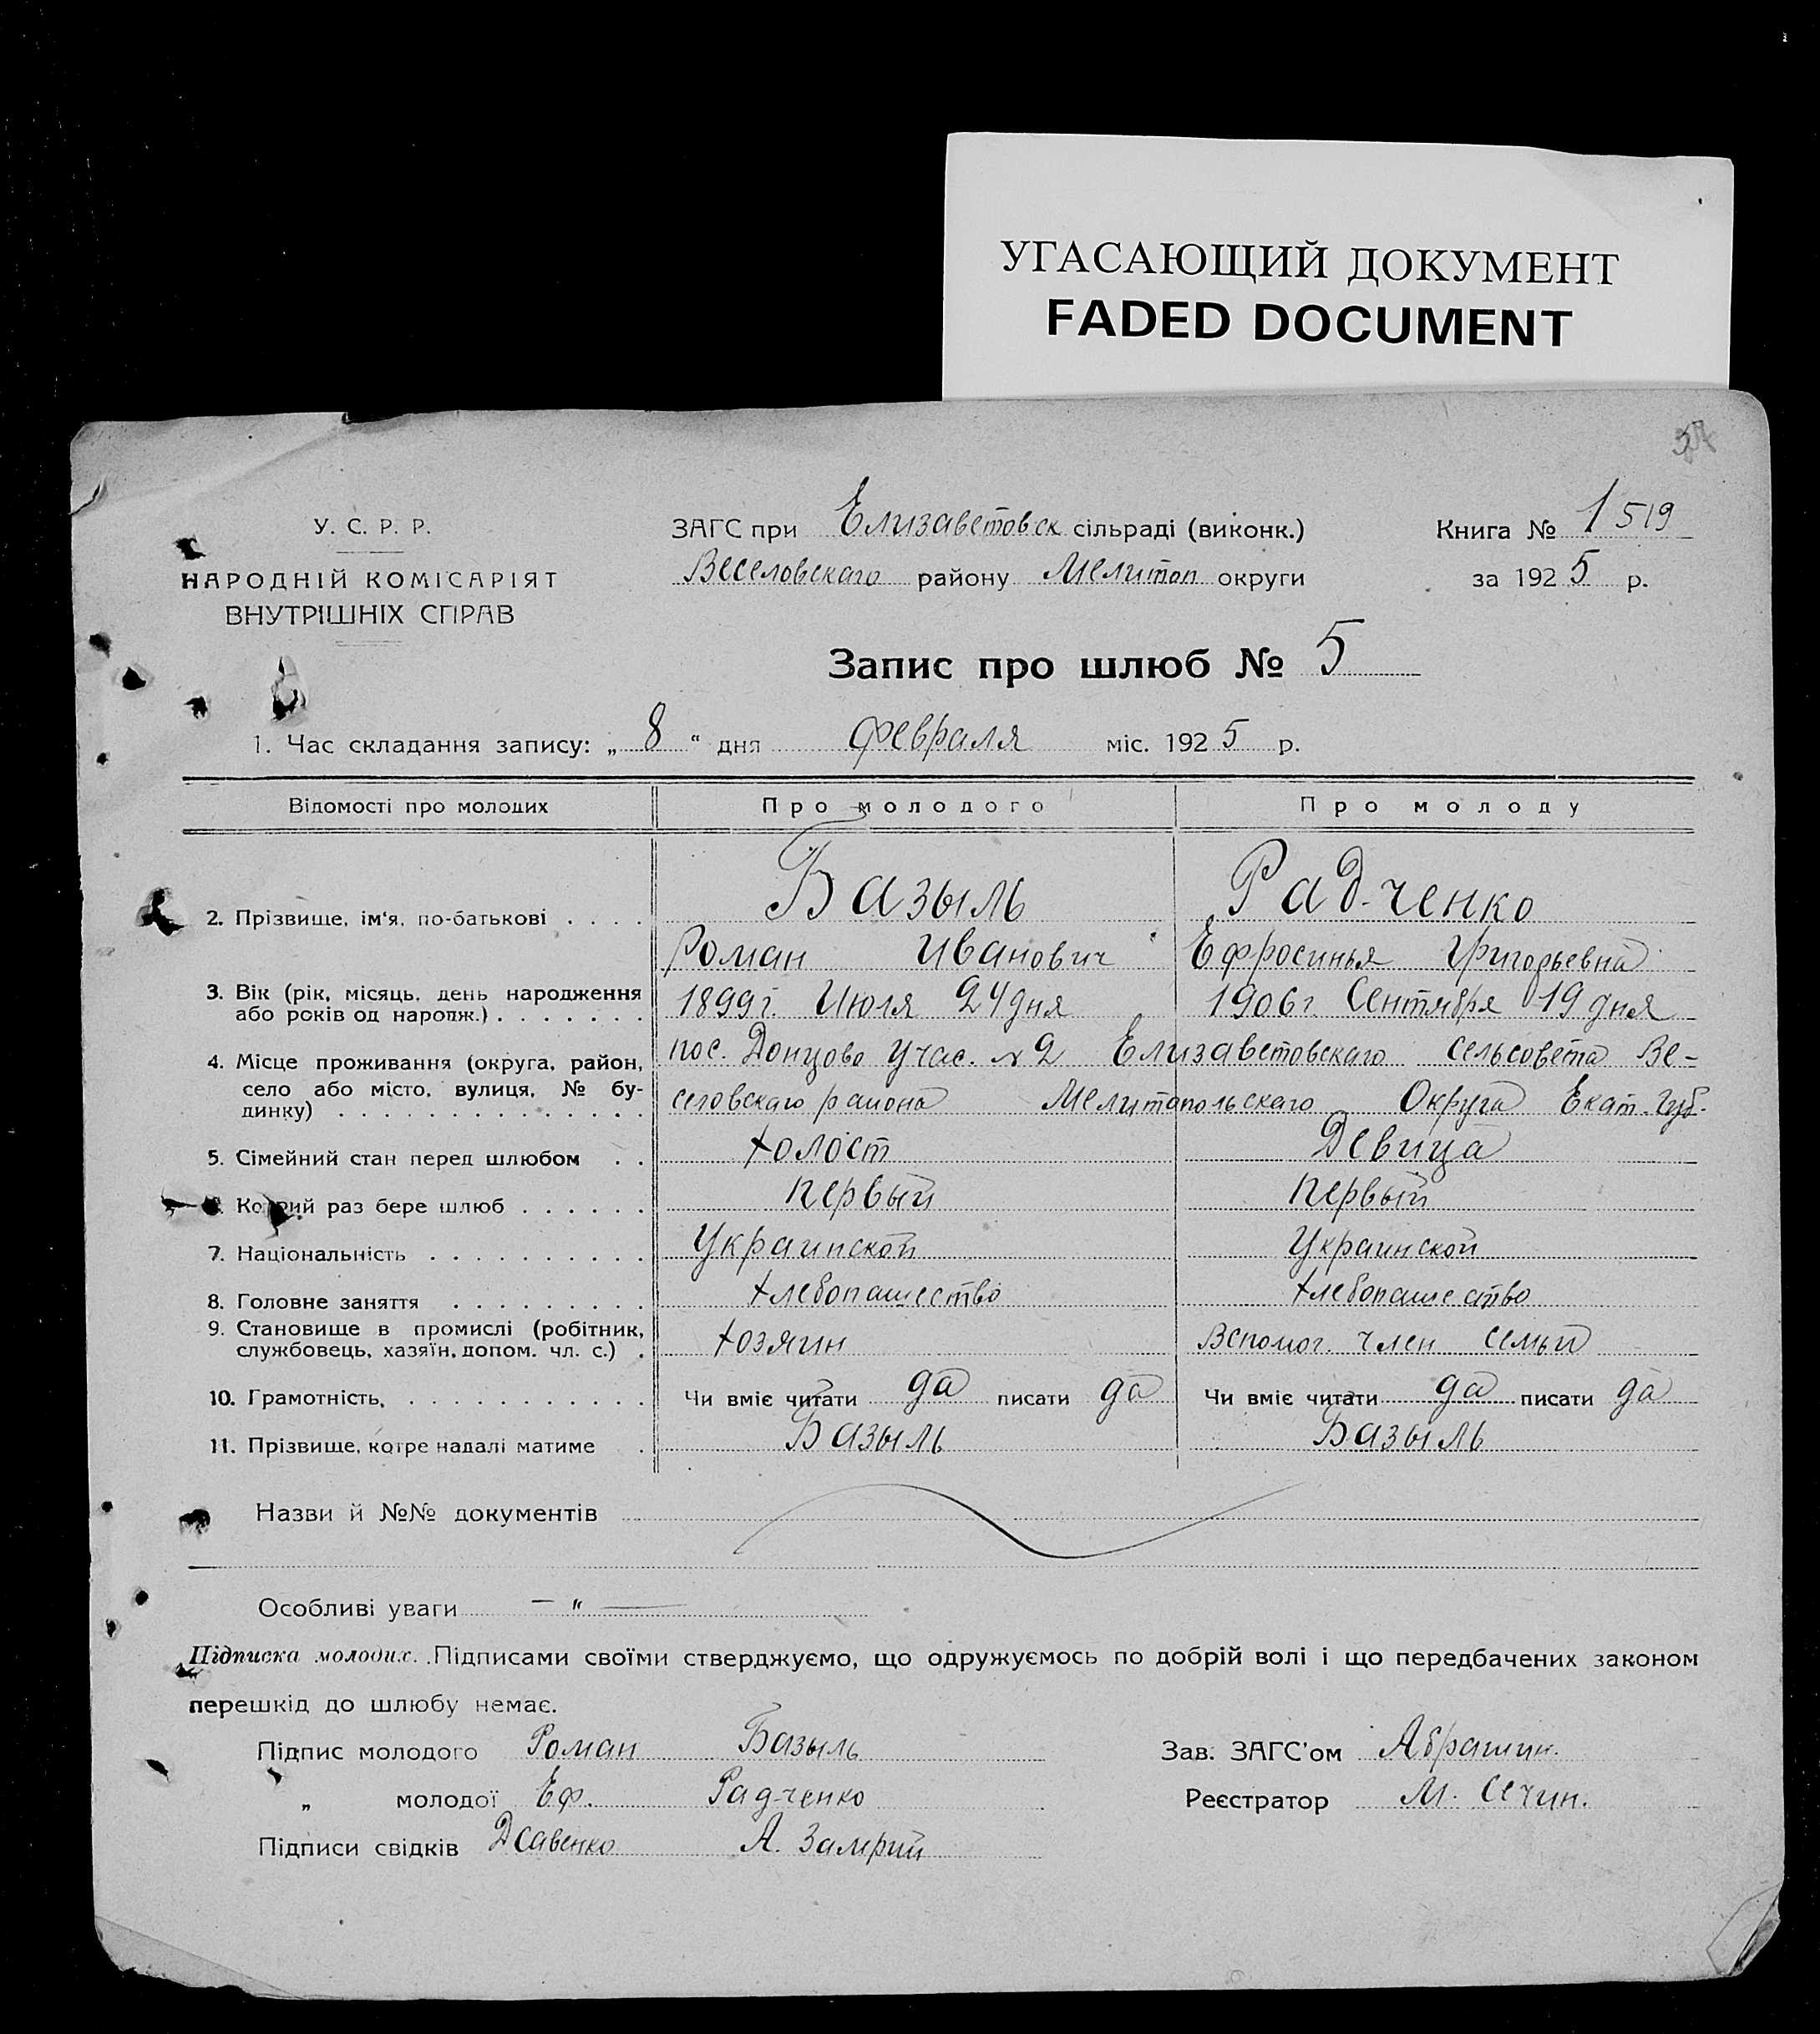 УГАСАЮЩИЙ ДОКУМЕНТ
FADED DOCUMENT
У. С. Р. Р.
НАРОДНІЙ КОМІСАРІЯТ
ВНУТРІШНІХ СПРАВ
ЗАГС при Елизаветовск сільраді (виконк.)
Веселовскаго району Мелитоп округи
Книга № 1 519
за 1925 р.
Запис про шлюб № 5
1. Час складання запису: „ 8 “ дня февраля міс. 1925 р.
Відомості про молодих Про молодого Про молоду
2. Прізвище, ім'я, по-батькові . . . . Базыль Радченко
Роман Иванович Ефросинья Григорьевна
3. Вік (рік, місяць, день народження
або років од народж.) . . . . . . . 1899 г. Июля 24 дня 1906 г Сентября 19 дня
4. Місце проживання (округа, район, пос. Донцово Учас. № 2 Елизаветовскаго сельсовета Ве-
село або місто, вулиця, № бу-
динку) . . . . . . . . . . . . . . селовскаго района Мелитопольскаго Округа Екат. Губ.
5. Сімейний стан перед шлюбом . . Холост Девица
Котрий раз бере шлюб . . . . . . первый первый
7. Національність . . . . . . . . . . Украинской Украинской
8. Головне заняття . . . . . . . . . Хлебопашество Хлебопашество
9. Становище в промислі (робітник,
службовець, хазяїн, допом. чл. с.) . Хозяин Вспомог. член семьи
10. Грамотність, . . . . . . . . . . . Чи вміє читати да писати да Чи вміє читати да писати да
11. Прізвище, котре надалі матиме . Базыль Базыль
Назви й №№ документів
Особливі уваги — „ —
Підписка молодих. Підписами своїми стверджуємо, що одружуємось по добрій волі і що передбачених законом
перешкід до шлюбу немає.
Підпис молодого Роман Базыль Зав. ЗАГС'ом Абрашин.
„ молодої Еф. Радченко Реєстратор М. Сечин.
Підписи свідків ДСавенко А. Замрий